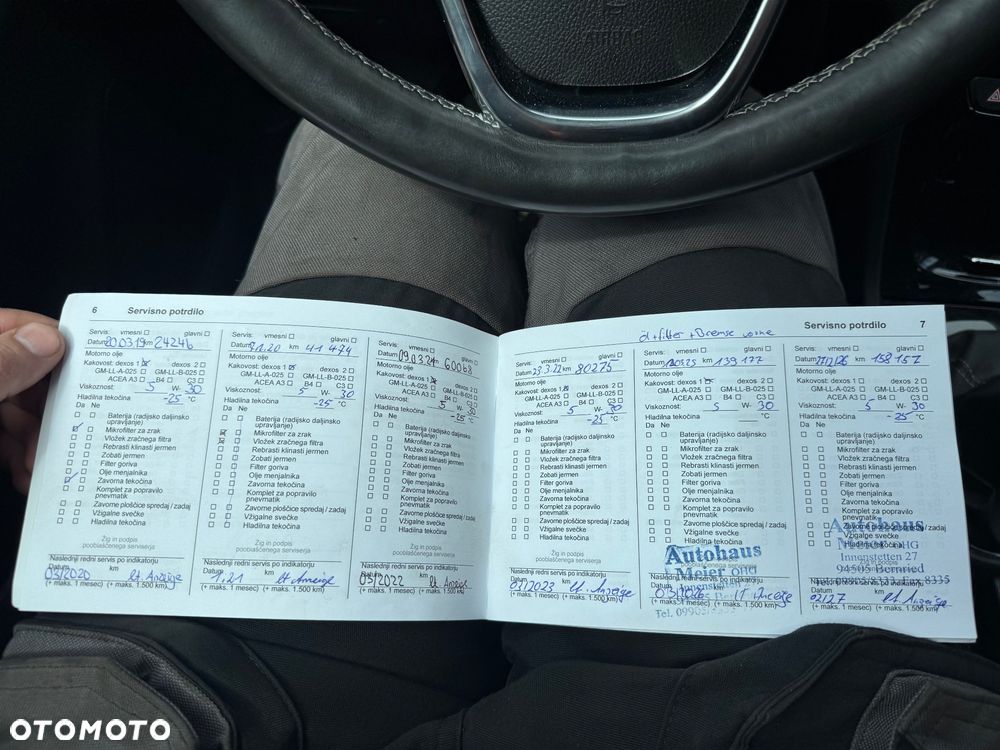 AIRBAG
6 Servisno potrdilo
Servis: vmesni ☐ glavni ☐
Datum 20.03.19 km 24246
Motorno olje
Kakovost: dexos 1 ☒ dexos 2 ☐
GM-LL-A-025 ☐ GM-LL-B-025 ☐
ACEA A3 ☐ B4 ☐ C3 ☐
Viskoznost: 5 W- 30
Hladilna tekočina -25 °C
Da Ne
Baterija (radijsko daljinsko
upravljanje)
Mikrofilter za zrak
Vložek zračnega filtra
Rebrasti klinasti jermen
Zobati jermen
Filter goriva
Olje menjalnika
Zavorna tekočina
Komplet za popravilo
pnevmatik
Zavorne ploščice spredaj / zadaj
Vžigalne svečke
Hladilna tekočina
Žig in podpis
pooblaščenega serviserja
Naslednji redni servis po indikatorju
Datum km
03/2020 lt. Anzeige
(+ maks. 1 mesec) (+ maks. 1.500 km)
Servis: vmesni ☐ glavni ☐
Datum 1.20 km 41 474
Motorno olje
Kakovost: dexos 1 ☒ dexos 2 ☐
GM-LL-A-025 ☐ GM-LL-B-025 ☐
ACEA A3 ☐ B4 ☐ C3 ☐
Viskoznost: 5 W- 30
Hladilna tekočina -25 °C
Da Ne
Baterija (radijsko daljinsko
upravljanje)
Mikrofilter za zrak
Vložek zračnega filtra
Rebrasti klinasti jermen
Zobati jermen
Filter goriva
Olje menjalnika
Zavorna tekočina
Komplet za popravilo
pnevmatik
Zavorne ploščice spredaj / zadaj
Vžigalne svečke
Hladilna tekočina
Žig in podpis
pooblaščenega serviserja
Naslednji redni servis po indikatorju
Datum km
1.21 lt Anzeige
(+ maks. 1 mesec) (+ maks. 1.500 km)
Servis: vmesni ☐ glavni ☐
Datum 09.03.21 km 60068
Motorno olje
Kakovost: dexos 1 ☒ dexos 2 ☐
GM-LL-A-025 ☐ GM-LL-B-025 ☐
ACEA A3 ☐ B4 ☐ C3 ☐
Viskoznost: 5 W- 30
Hladilna tekočina -25 °C
Da Ne
Baterija (radijsko daljinsko
upravljanje)
Mikrofilter za zrak
Vložek zračnega filtra
Rebrasti klinasti jermen
Zobati jermen
Filter goriva
Olje menjalnika
Zavorna tekočina
Komplet za popravilo
pnevmatik
Zavorne ploščice spredaj / zadaj
Vžigalne svečke
Hladilna tekočina
Žig in podpis
pooblaščenega serviserja
Naslednji redni servis po indikatorju
Datum km
03/2022 lt.
(+ maks. 1 mesec) (+ maks. 1.500 km)
Servisno potrdilo 7
Öl+filter +Bremse vorne
Servis: vmesni ☐ glavni ☐
Datum 23.3.22 km 80275
Motorno olje
Kakovost: dexos 1 ☒ dexos 2 ☐
GM-LL-A-025 ☐ GM-LL-B-025 ☐
ACEA A3 ☐ B4 ☐ C3 ☐
Viskoznost: 5 W- 30
Hladilna tekočina -25 °C
Da Ne
Baterija (radijsko daljinsko
upravljanje)
Mikrofilter za zrak
Vložek zračnega filtra
Rebrasti klinasti jermen
Zobati jermen
Filter goriva
Olje menjalnika
Zavorna tekočina
Komplet za popravilo
pnevmatik
Zavorne ploščice spredaj / zadaj
Vžigalne svečke
Hladilna tekočina
Žig in podpis
pooblaščenega serviserja
Naslednji redni servis po indikatorju
Datum km
03/2023 lt. Anzeige
(+ maks. 1 mesec) (+ maks. 1.500 km)
Servis: vmesni ☐ glavni ☐
Datum km 139177
Motorno olje
Kakovost: dexos 1 ☒ dexos 2 ☐
GM-LL-A-025 ☐ GM-LL-B-025 ☐
ACEA A3 ☐ B4 ☐ C3 ☐
Viskoznost: 5 W- 30
Hladilna tekočina °C
Da Ne
Baterija (radijsko daljinsko
upravljanje)
Mikrofilter za zrak
Vložek zračnega filtra
Rebrasti klinasti jermen
Zobati jermen
Filter goriva
Olje menjalnika
Zavorna tekočina
Komplet za popravilo
pnevmatik
Zavorne ploščice spredaj / zadaj
Vžigalne svečke
Hladilna tekočina
Autohaus
Meier OHG
Naslednji redni servis po indikatorju
Datum km
03/2026 lt Anzeige
(+ maks. 1 mesec) (+ maks. 1.500 km)
Servis: vmesni ☐ glavni ☐
Datum km 158 157
Motorno olje
Kakovost: dexos 1 ☒ dexos 2 ☐
GM-LL-A-025 ☐ GM-LL-B-025 ☐
ACEA A3 ☐ B4 ☐ C3 ☐
Viskoznost: 5 W- 30
Hladilna tekočina -25 °C
Da Ne
Baterija (radijsko daljinsko
upravljanje)
Mikrofilter za zrak
Vložek zračnega filtra
Rebrasti klinasti jermen
Zobati jermen
Filter goriva
Olje menjalnika
Zavorna tekočina
Komplet za popravilo
pnevmatik
Zavorne ploščice spredaj / zadaj
Vžigalne svečke
Hladilna tekočina
Autohaus
Meier OHG
Innenstetten 27
94505 Bernried
Naslednji redni servis po indikatorju
Datum km
02/27 lt. Anzeige
(+ maks. 1 mesec) (+ maks. 1.500 km)
OTOMOTO